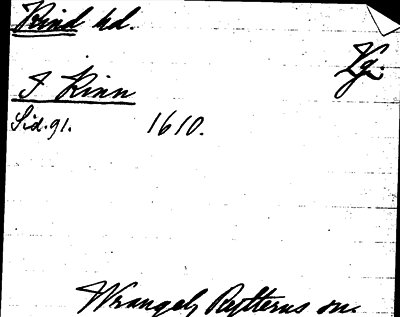 Kind hd.
Vg.
I Kinn
Sid. 91. 1610.
Wrangels Rytterus on.